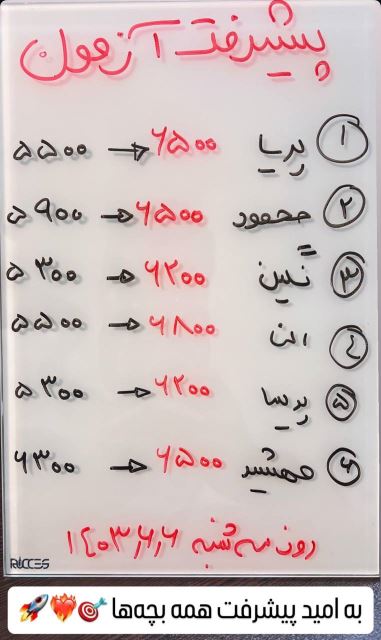 پیشرفت آزمون
۱ پریا ۶۵۰۰ → ۵۵۰۰
۲ محمود ۶۵۰۰ → ۵۹۰۰
۳ نگین ۶۲۰۰ → ۵۳۰۰
۴ الن ۶۸۰۰ → ۵۵۰۰
۵ پریسا ۶۲۰۰ → ۵۳۰۰
۶ مهشید ۶۵۰۰ → ۶۳۰۰
روز سه شنبه ۱۴۰۳,۶,۶
به امید پیشرفت همه بچه‌ها 🎯❤️‍🔥🚀